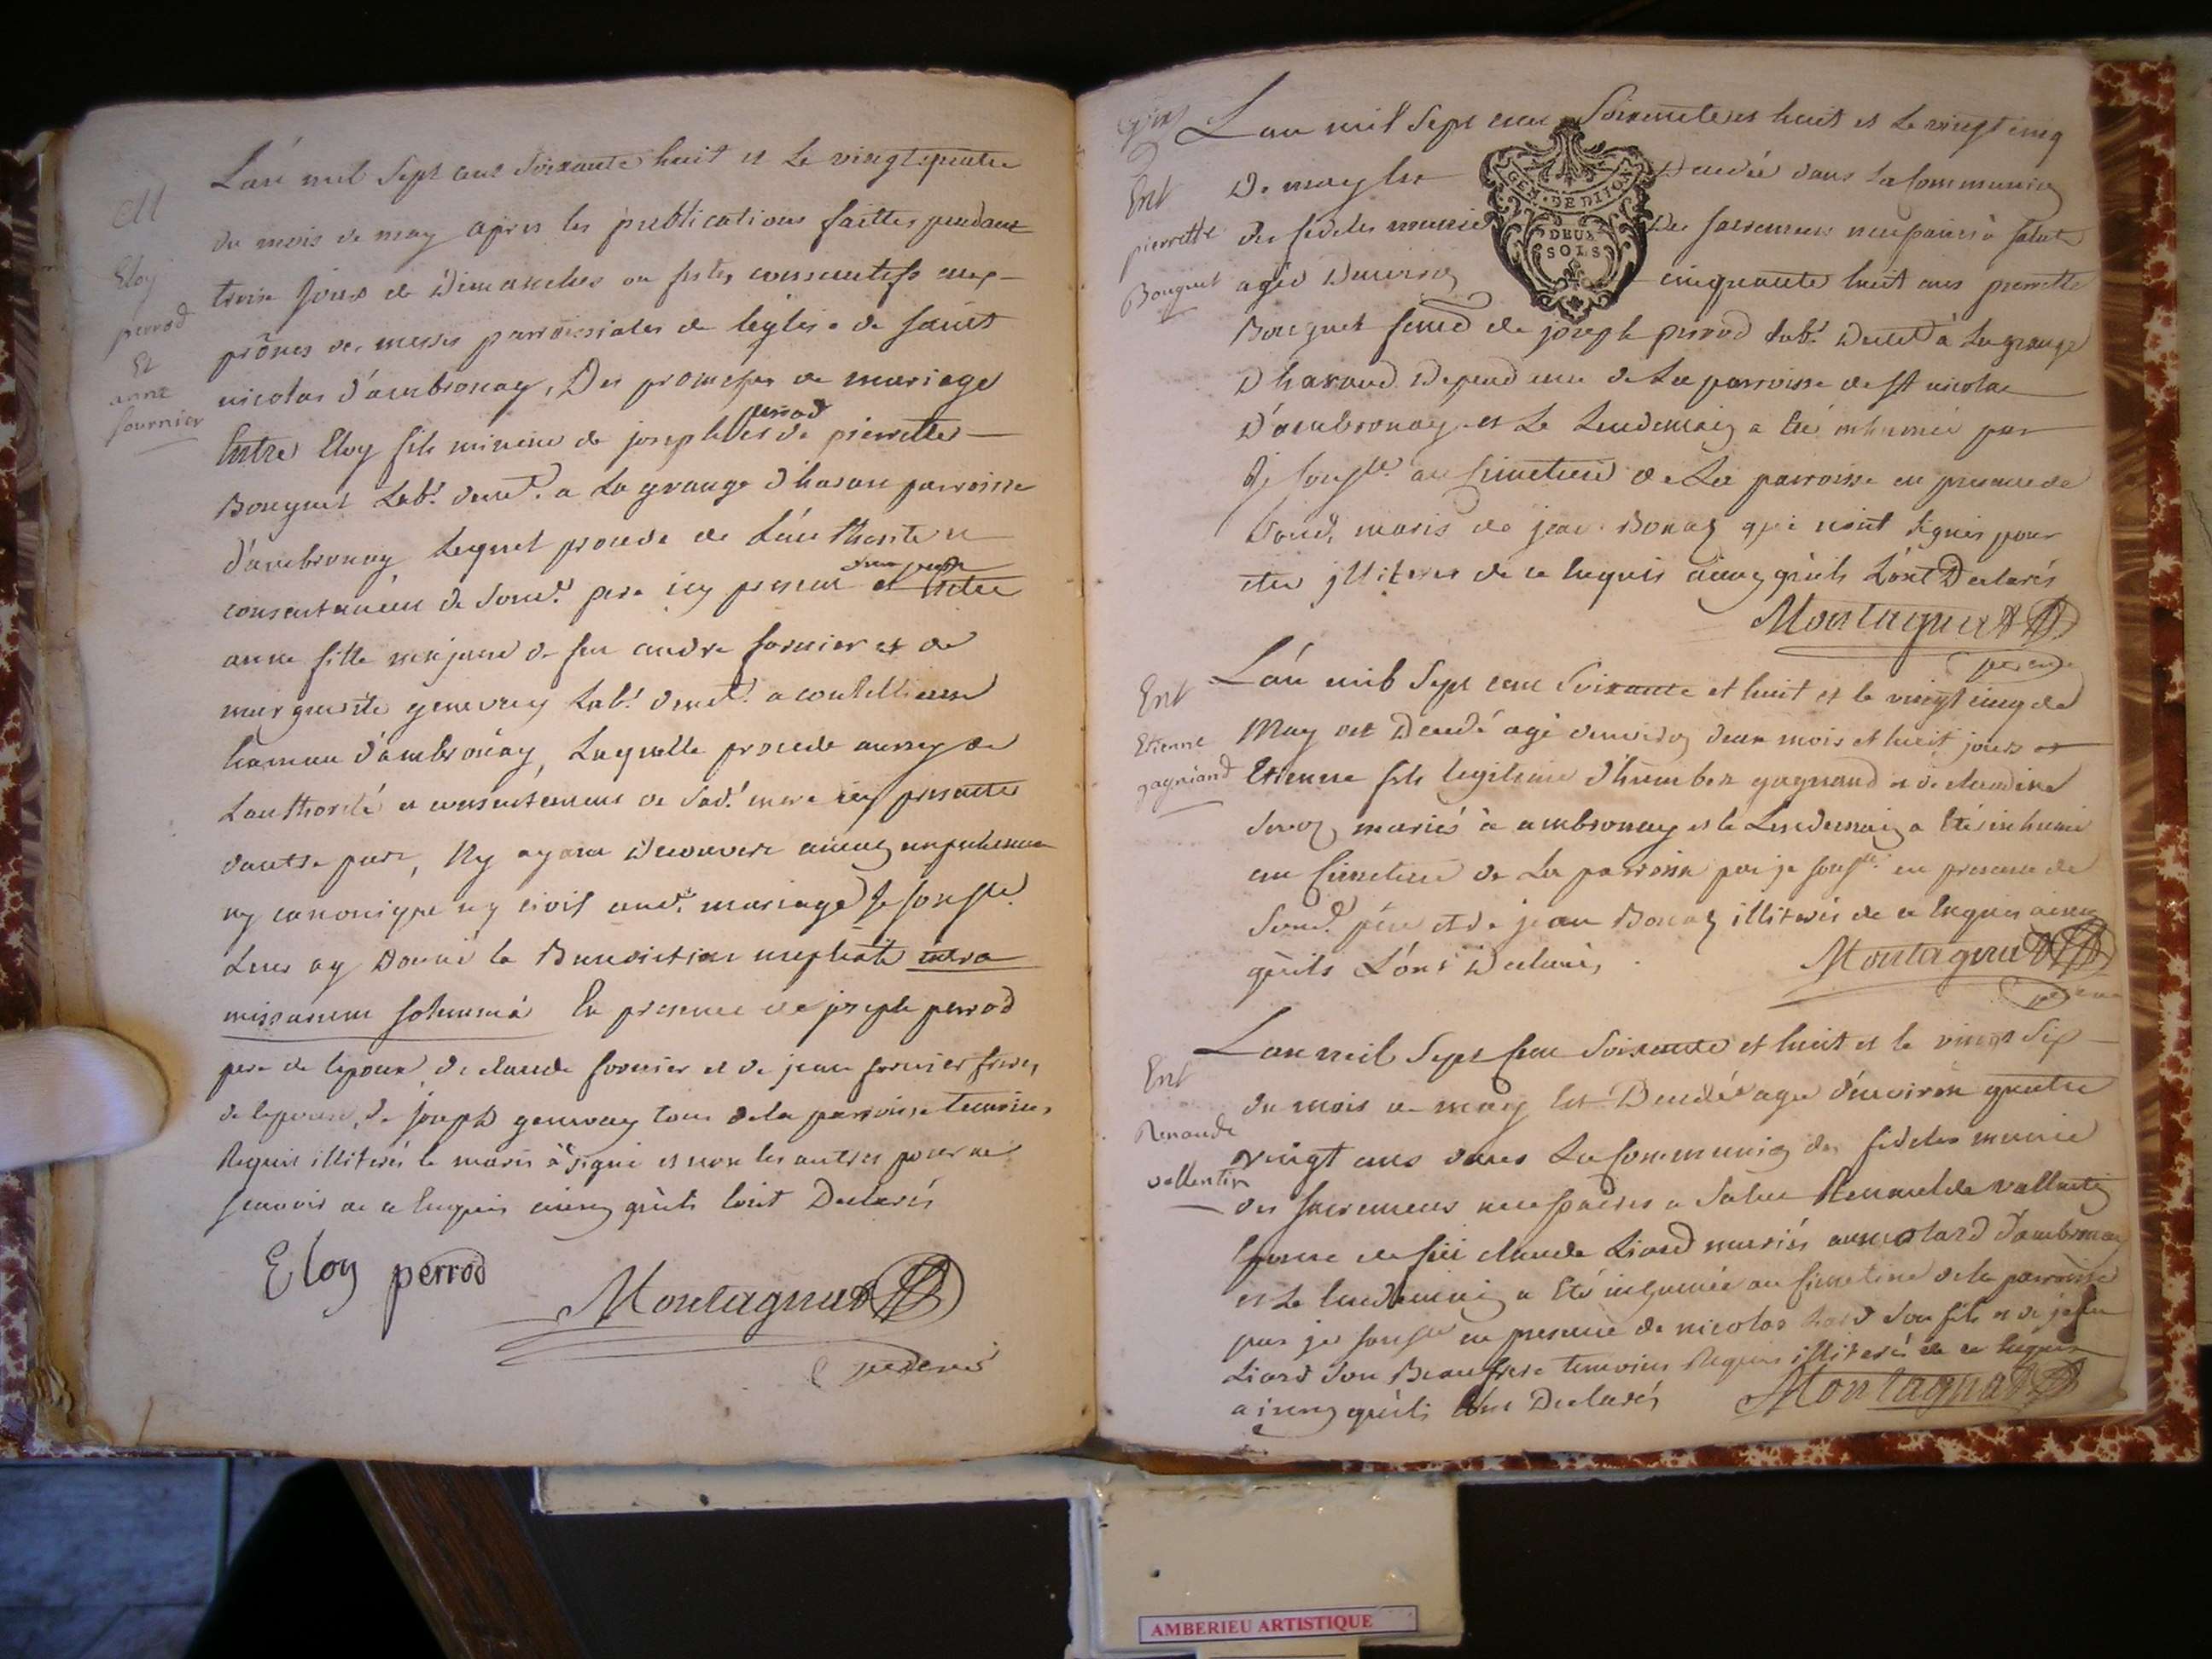 M
Eloy
perrod
Et
anne
fournier
L'an mil sept cent soixante huit et le vingt quatre
du mois de may apres les publications faittes pendant
trois jours de Dimanches ou festes consecutifs aux
prônes des messes parroissiales de leglise de saint
nicolas d'ambronay, Des promesses de mariage
Entre Eloy fils mineur de joseph perrod et de pierrette
Bouquet Labr. demt. a La grange d'hasan parroisse
d'ambronay Lequel procede de L'authorité et
consentement de soud. pere icy present d'une part et
anne fille majeure de feu andre fornier et de
marguerite genevray Labr. demt. a
hameau d'ambronay, Laquelle procede aussy de
Lauthorité et consentement de sad. mere icy presente
dautre part, Ny ayant decouvert aucun empechement
ny canonique ny civil aud. mariage je soussé
Leur ay Donné la Benediction nuptiale intra
missarum solemnia En presence de joseph perrod
pere de lepoux, de claude fornier et de jean fornier freres
de lepouse, de joseph genevray tous de la parroisse temoins
Requis illiterés le maris à signé et non les autres pour ne
scavoir de ce Enquis ainsy qu'ils l'ont Declarés
Eloy perrod
Montagnat
Ent
pierrette
Bouquet
L'an mil sept cent soixante et huit et le vingt cinq
De may Est Decedée dans la Communion
des fidelles munie Des sacremens necessaires à salut
agée Denviron cinquante huit ans pierrette
Bouquet femme de joseph perrod Labr. Demt. à La grange
D'hasand Dependance de La parroisse de st nicolas
D'ambronay et Le Lendemain a Eté inhumée par
je soussé au Cimetiere de La parroisse en presence de
soud. maris de jean Bonaz qui n'ont signés pour
etre jlliterés de ce Enquis ainsy qu'ils L'ont Declarés
Montagnat
GEN. DE DIJON
DEUX
SOLS
Ent
Etienne
gagniand
L'an mil sept cent soixante et huit et le vingt cinq de
May est Decedé agé denviron deux mois et huit jours
Etienne fils legitime d'humber gagnand et de claudine
mariés à ambronay et le Lendemain a Eté inhumé
au Cimetiere de La parroisse par je soussé en presence de
soud. père et de jean Bonaz illiterés de ce Enquis ainsy
qu'ils L'ont Declarés
Montagnat
Ent
Renaude
vallentin
L'an mil sept cent soixante et huit et le vingt six
du mois de may Est Decedée agée d'environ quatre
vingt ans dans La Communion des fideles munie
des sacremens necessaires a salut Renaude vallentin
femme de feu claude Liard mariés au molard d'ambronay
et Le lendemain a Eté inhumée au Cimetiere de la parroisse
par je soussé en presence de nicolas Liard son fils et de jean
Liard son Beaufrere temoins Requis illiterés de ce Enquis
ainsy qu'ils L'ont Declarés
Montagnat
AMBERIEU ARTISTIQUE